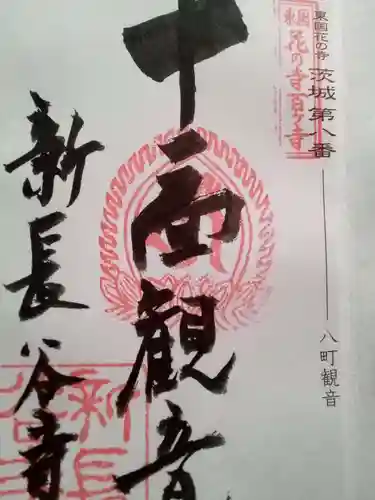 東国花の寺 茨城 第八番 八町観音
東国
花の寺百ヶ寺
十一面観音
新長谷寺
新長
谷寺